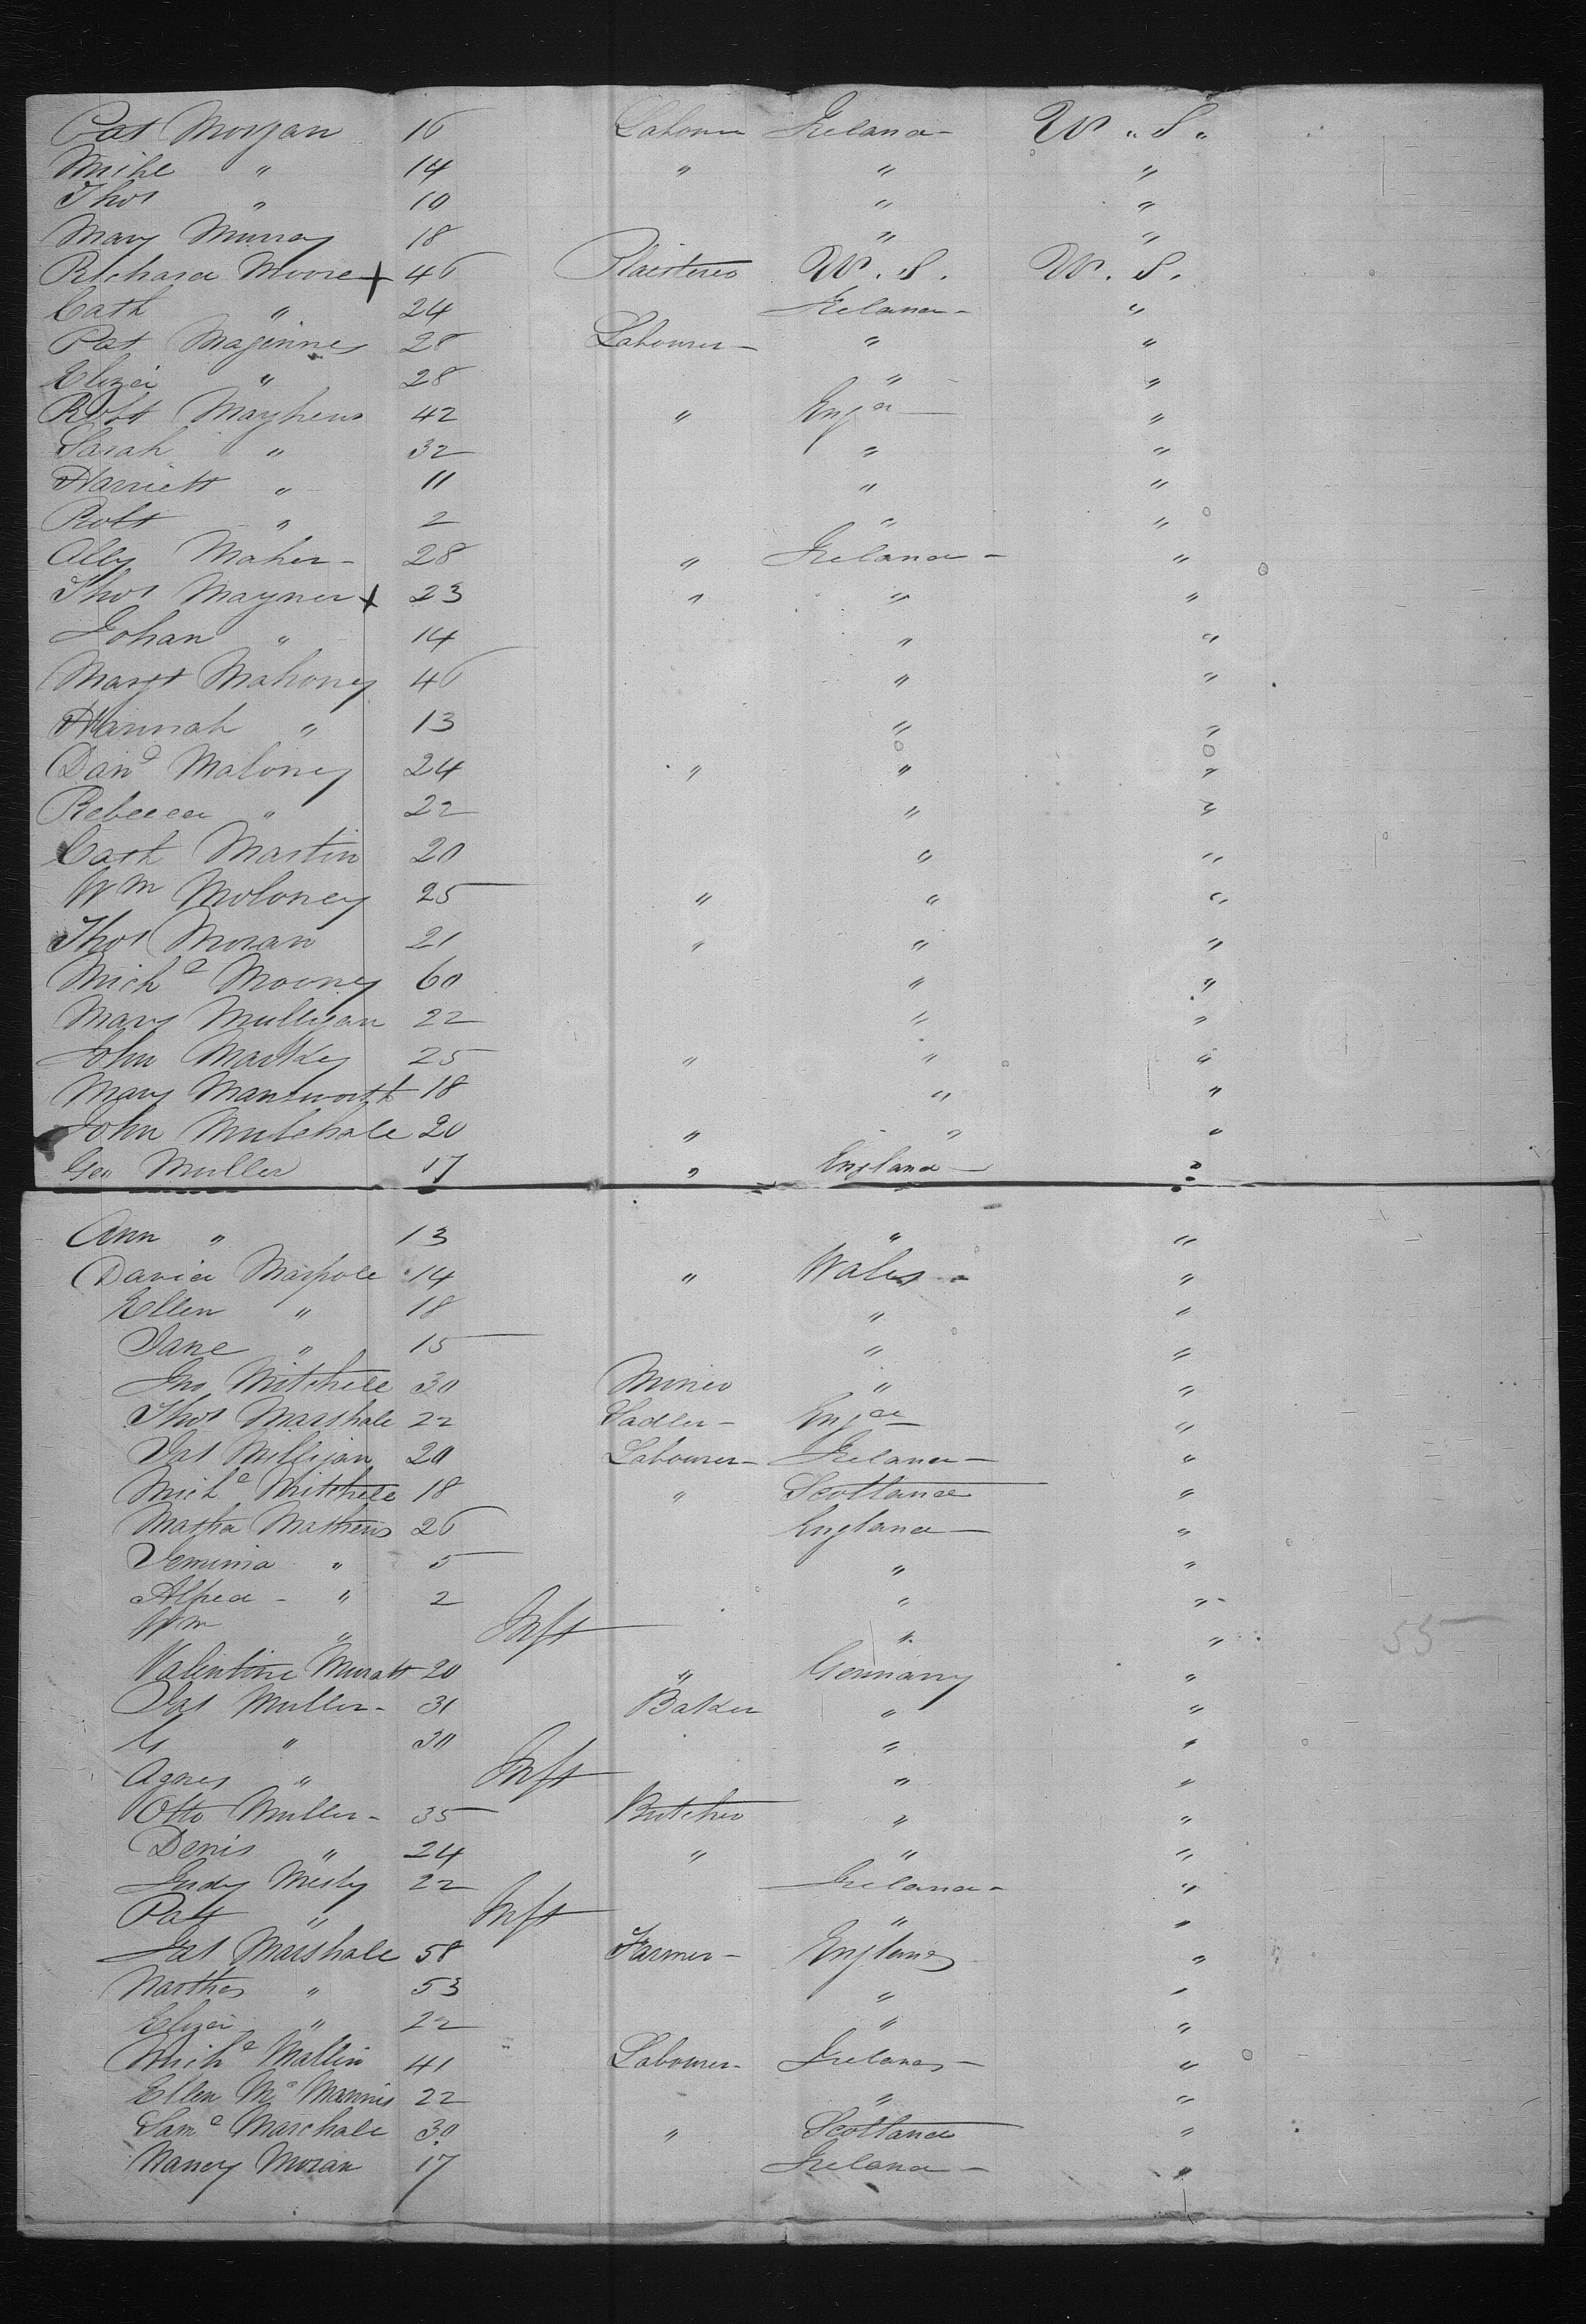 Pat Morgan 16 Labourer Ireland - U. S.
Mike " 14 " " "
Thos " 10 " "
Mary Murray 18 " "
Richard Moore x 46 Plaisterer U. S. U. S.
Cath " 24 Ireland - "
Pat Maginnes 28 Labourer - " "
Eliza " 28 " "
Robt Mayhew 42 " Engd "
Sarah " 32 " "
Harriett " 11 " "
Robt " 2 " "
Alby Maher - 28 " Ireland - "
Thos Mayner x 23 " " "
Johan " 14 " "
Margt Mahoney 46 " "
Hannah " 13 " "
Danl Maloney 24 " " "
Rebecca " 22 " "
Cath Martin 20 " "
Wm Moloney 25 " " "
Thos Moran 21 " " "
Michl Mooney 60 " "
Mary Mulligan 22 " "
John Markey 25 " " "
Mary Mansworth 18 " "
John Mulchale 20 " " "
Geo Muller 17 " England "
Ann " 13 " "
David Marpole 14 " Wales - "
Ellen " 18 " "
Jane " 15 " "
Jno Mitchell 30 Miner " "
Thos Marshall 22 Sadler - Engd "
Jas Milligan 20 Labourer - Ireland - "
Michl Mitchell 18 " Scotland "
Martha Mathews 26 England "
Jemima " 5 " "
Alfred - " 2 " "
Wm " Inft " "
Valentine Muratt 20 " Germany "
Jas Muller - 31 Baker " "
G " 30 " "
Agnes " Inft " "
Otto Muller - 35 Butcher " "
Denis " 24 " " "
Judy Mesly 22 Ireland - "
Patt " Inft " "
Jas Marshall 58 Farmer - England "
Marthe " 53 " "
Eliza " 22 " "
Michl Mallin 41 Labourer - Ireland - "
Ellen Mc Mannis 22 " "
Saml Marchall 30 " Scotland "
Nancy Moran 17 Ireland - "
55